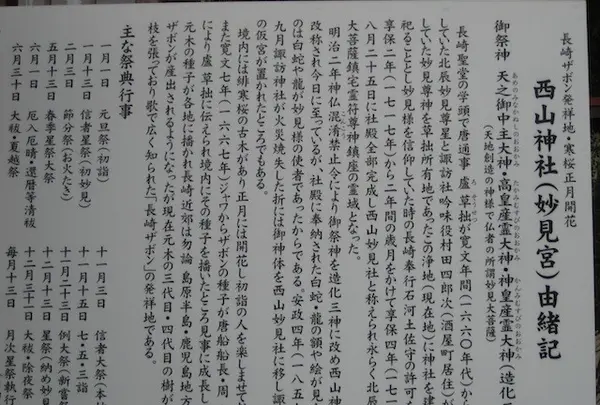 長崎ザボン発祥地・寒桜正月開花
西山神社(妙見宮)由緒記
御祭神 天之御中主大神・高皇産霊大神・神皇産霊大神(造化三
(天地創造の神様で仏者の所謂妙見大菩薩)
長崎聖堂の学頭で唐通事 盧草拙が寛文年間(一六六〇年代)から
していた北辰妙見尊星と諏訪社吟味役村田四郎次(酒屋町居住)が
していた妙見尊神を草拙所有地であったこの浄地(現在地)に神社を建
祀ることとし妙見様を信仰していた時の長崎奉行石河土佐守の許可
享保二年(一七一七年)から二年間の歳月をかけて享保四年(一七一
八月二十五日に社殿全部完成し西山妙見社と称えられ永らく北辰
大菩薩鎮宅霊符尊神鎮座の霊域となった。
明治二年神仏混淆禁止令により御祭神を造化三神に改め西山神
改称され今日に至っているが、社殿に奉納された白蛇、龍の額や絵が見
のは白蛇や龍が妙見様の使者であったからである。安政四年(一八五
九月諏訪神社が火災焼失した折には御神体を西山妙見社に移し諏
の仮宮が置かれたところでもある。
境内には緋寒桜の古木があり正月には開花し初詣の人を楽しませてい
また寛文七年(一六六七年)ジャワからザボンの種子が唐船船長・周
により盧草拙に伝えられ境内にその種子を播いたところ見事に成長し
元木の種子が各地に播かれ長崎近郊は勿論 島原半島・鹿児島地方
ザボンが産出されるようになったが現在元木の三代目・四代目の樹が
枝を張っており歌で広く知られた「長崎ザボン」の発祥地である。
主な祭典行事
一月一日 元旦祭(初詣)
一月十三日 信者星祭(初妙見)
二月三日 節分祭(お火たき)
五月十三日 春季星祭大祭
六月一日 厄入厄晴・還暦等清祓
六月三十日 大祓・夏越祭
十一月三日 信者大祭(本
十一月十五日 七・五・三詣
十一月二十三日 例大祭(新嘗
十二月十三日 星祭(納め妙見
十二月三十一日 大祓・除夜祭
毎月十三日 月次星祭執行